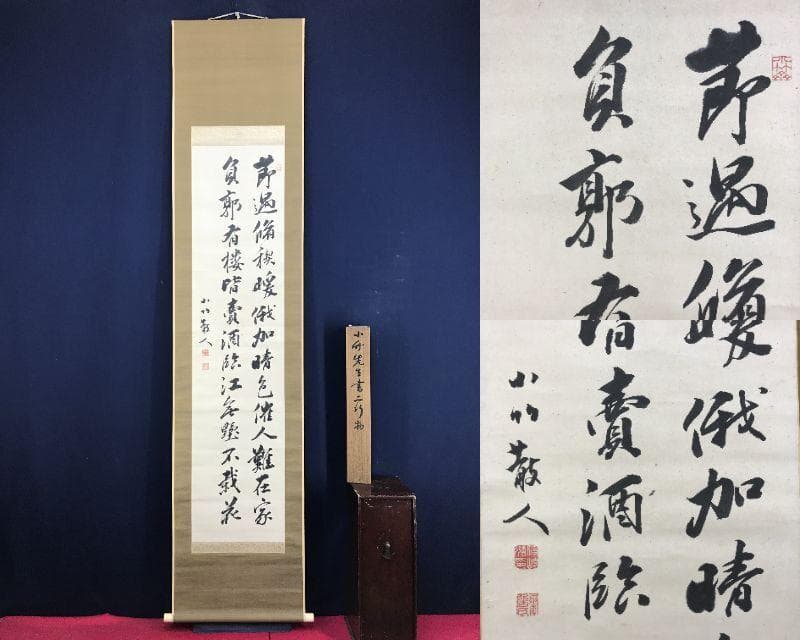 節過脩禊暖俄加晴色催人難在家
負郭有樓皆賣酒臨江無墅不栽花
小竹散人
小竹先生書二行物
節過暖俄加晴
負郭有賣酒臨
小竹散人